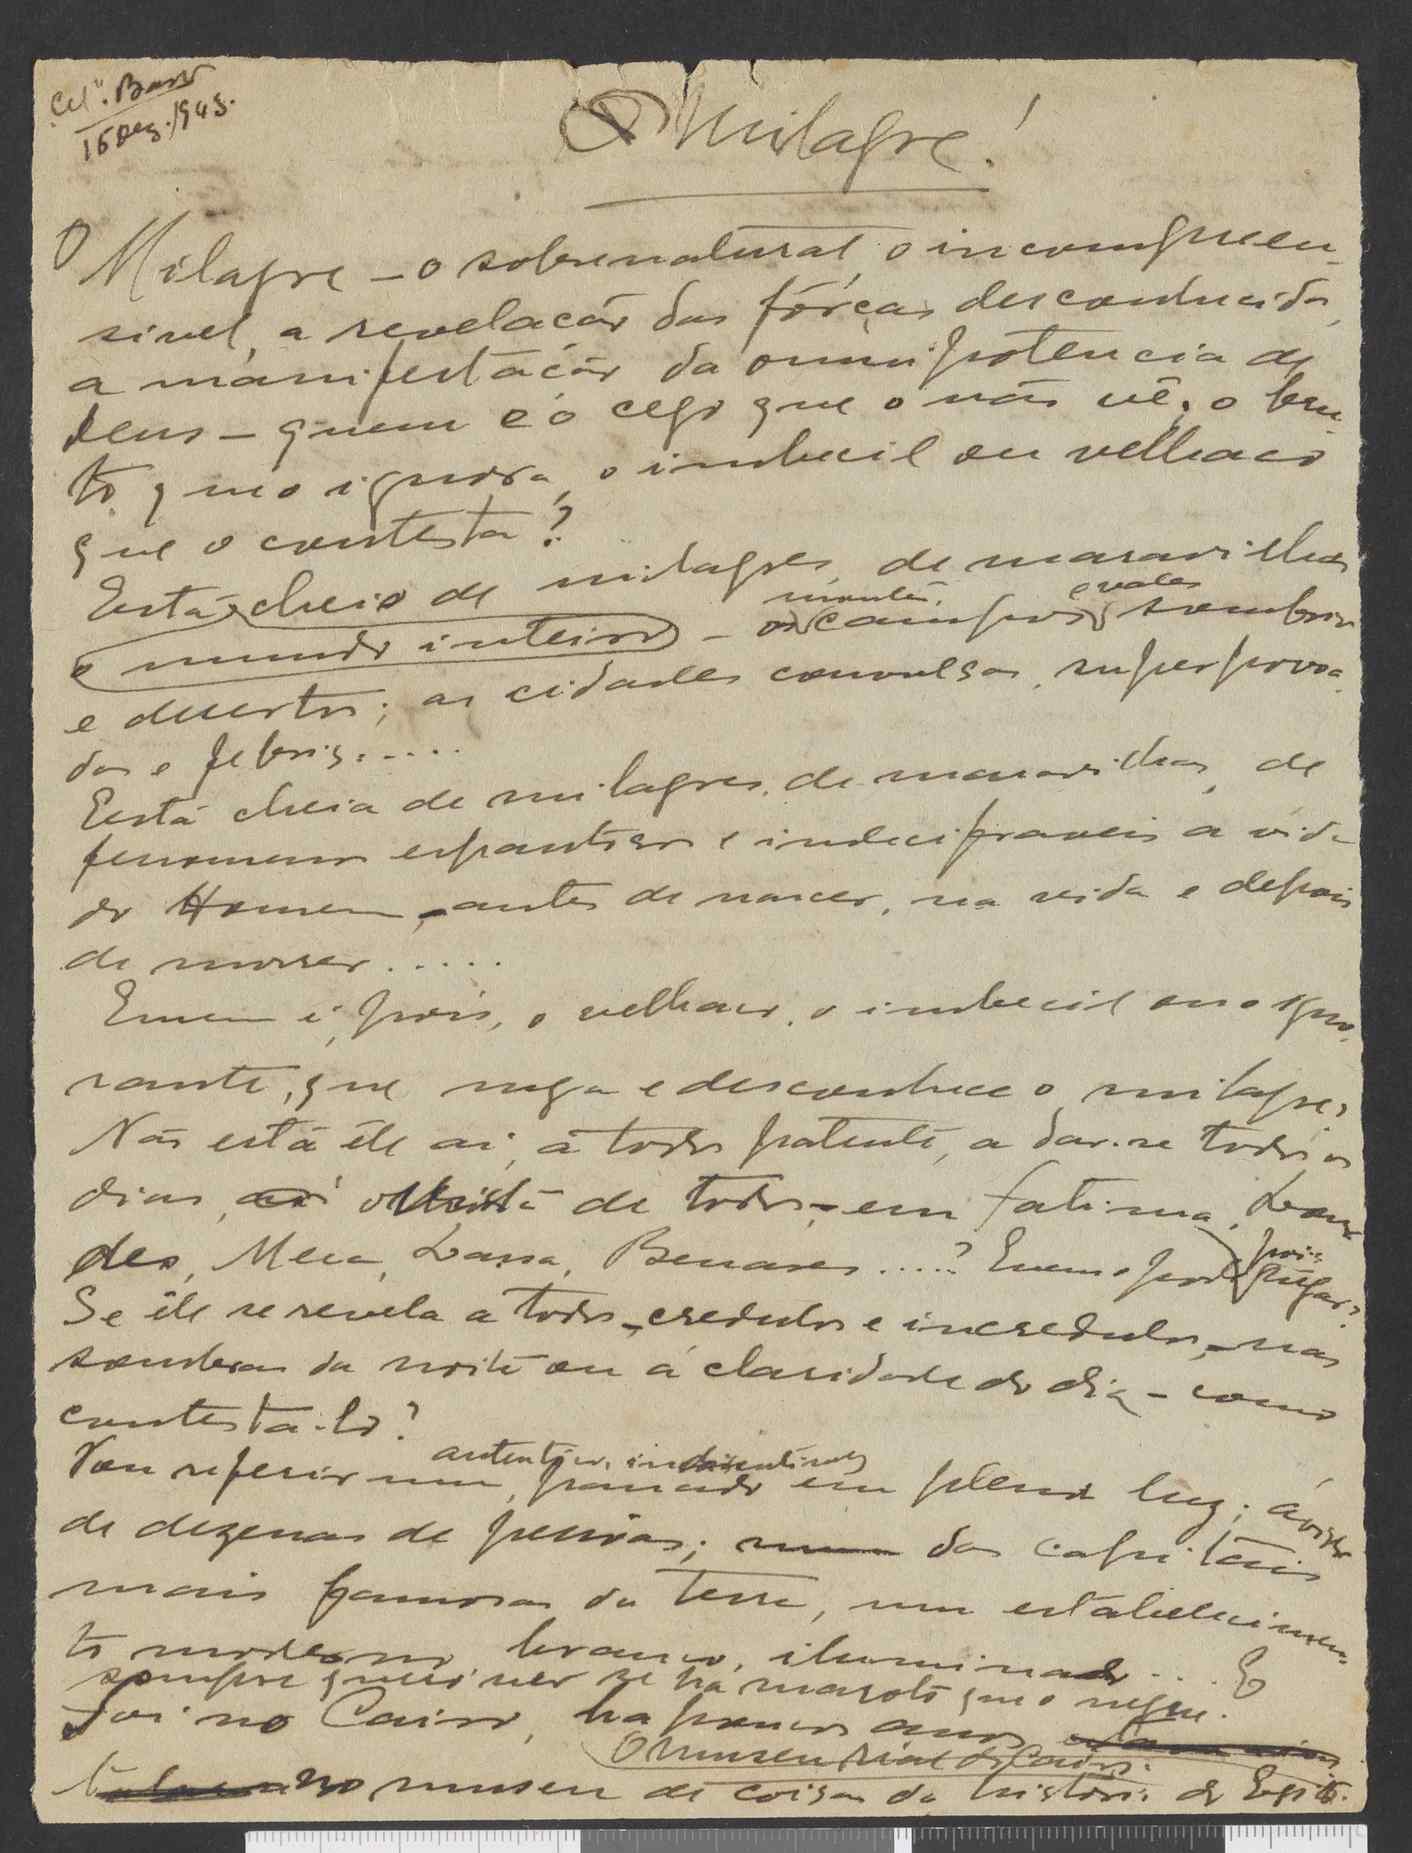 16 Dez. 1945.
O Milagre!
O Milagre – o sobrenatural, o incompreen-
sivel, a revelação das fôrças desconhecidas,
a manifestação da omnipotencia de
Deus – quem é o cego que o não vê, o bru-
to que o ignora, o imbecil ou velhaco
que o contesta?
Está cheio de milagres, de maravilhas
montes, e vales
o mundo inteiro – os campos sombrios
e desertos; as cidades convulsas, superpovoa-
das e febris.....
Está cheia de milagres, de maravilhas, de
fenomenos espantosos e indecifraveis a vida
do Homem, – antes de nascer, na vida e depois
de morrer.....
Quem é, pois, o velhaco, o imbecil ou o igno-
rante, que nega e desconhece o milagre?
Não está êle aí, a todos patente, a dar-se todos os
dias, á vista de todos, – em Fatima, Lour-
des, Meca, Lassa, Benares.....? Quem o pode
pois negar?
Se êle se revela a todos, – credulos e incredulos, – nas
sombras da noite ou á claridade do dia – como
contesta-lo?
autentico, indiscutivel,
Vou referir um, passado em plena luz; á vista
de dezenas de pessoas; das capitais
mais famosas da terra, um estabelecimen-
to moderno, branco, iluminado...
sempre quero ver se há maroto que o negue.
Foi no Cairo, ha poucos anos
O museu Real do Cairo.
no museu de coisas da historia do Egito.